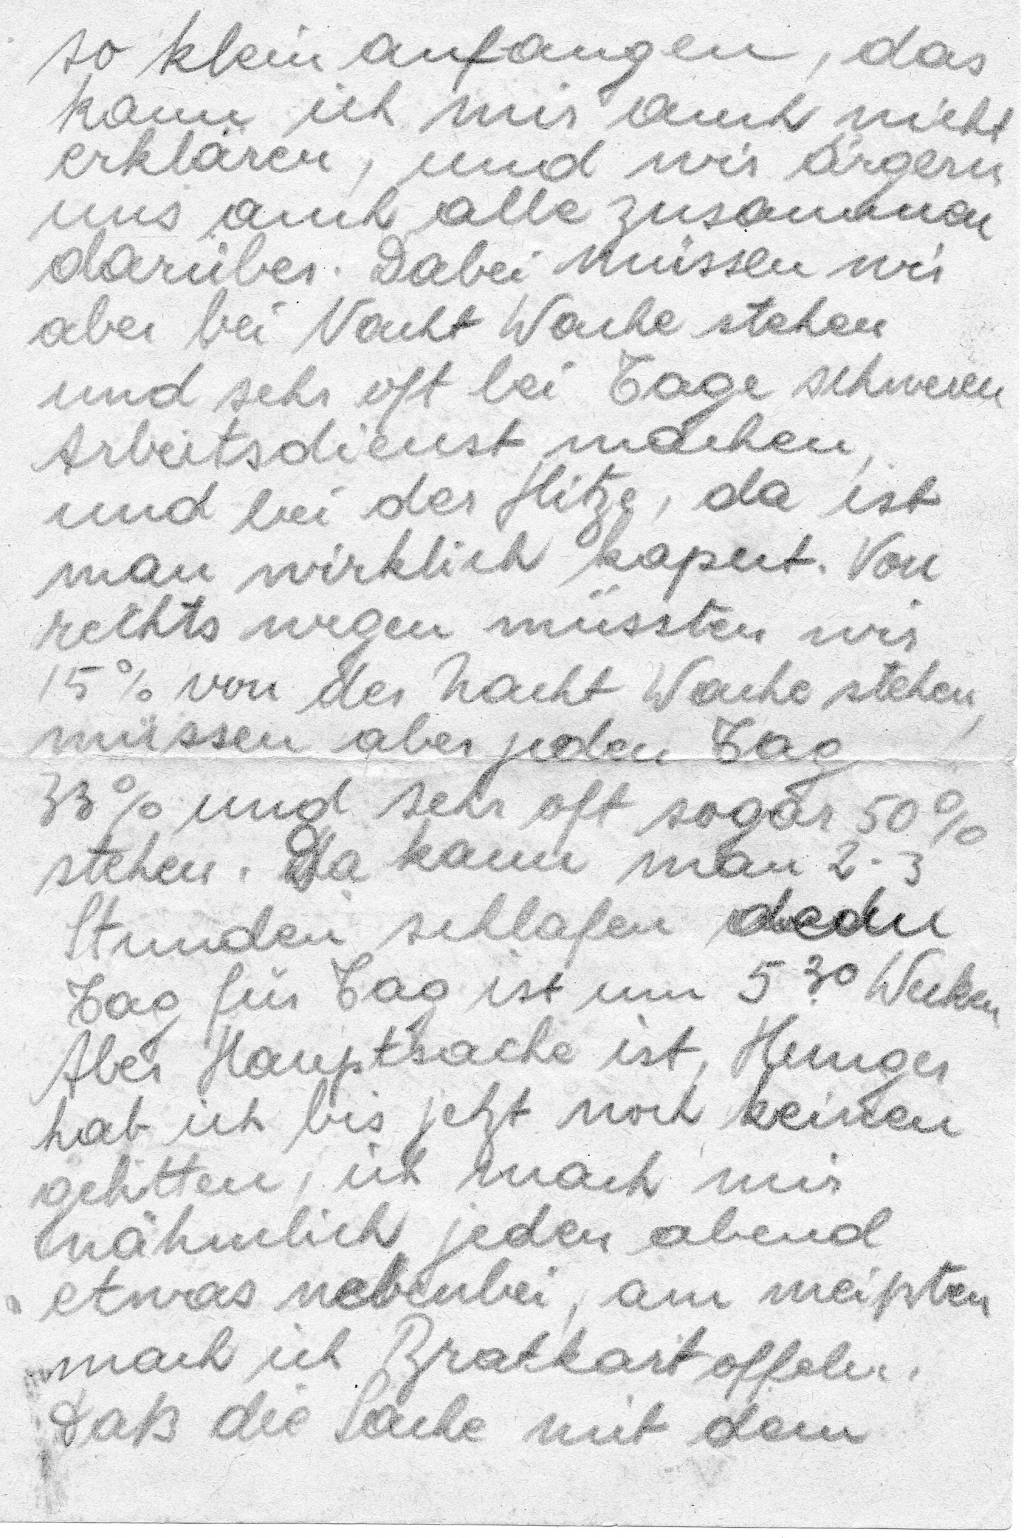 so klein anfangen, das
kann ich mir auch nicht
erklären, und wir ärgern
uns auch alle zusammen
darüber. Dabei müssen wir
aber bei Nacht Wache stehen
und sehr oft bei Tage schweren
Arbeitsdienst machen,
und bei der Hitze, da ist
man wirklich kaput. Von
rechts wegen müssten wir
15% von der Nacht Wache stehen,
müssen aber jeden Tag
33% und sehr oft sogar 50%
stehen. Da kann man 2-3
Stunden schlafen denn
Tag für Tag ist um 5 30 Wecken
Aber Hauptsache ist, Hunger
hab ich bis jetzt noch keinen
gelitten, ich mach mir
nähmlich jeden abend
etwas nebenbei, am meißten
mach ich Bratkartoffeln.
Daß die Sache mit dem